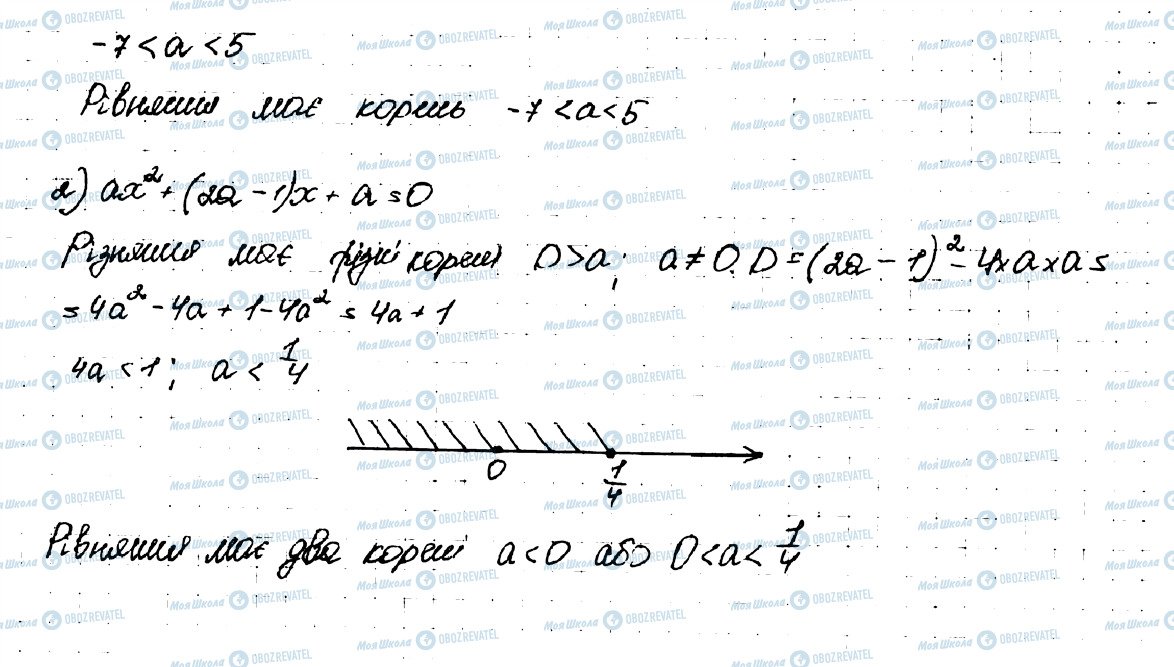 -7 < a < 5
Рівняння має корень -7 < a < 5
2) ax² + (2a - 1)x + a = 0
Різняння має різні корені D > a; a ≠ 0. D = (2a - 1)² - 4 x a x a =
= 4a² - 4a + 1 - 4a² = 4a + 1
4a < 1; a < 1/4
0 1/4
Рівняння має два корені a < 0 або 0 < a < 1/4